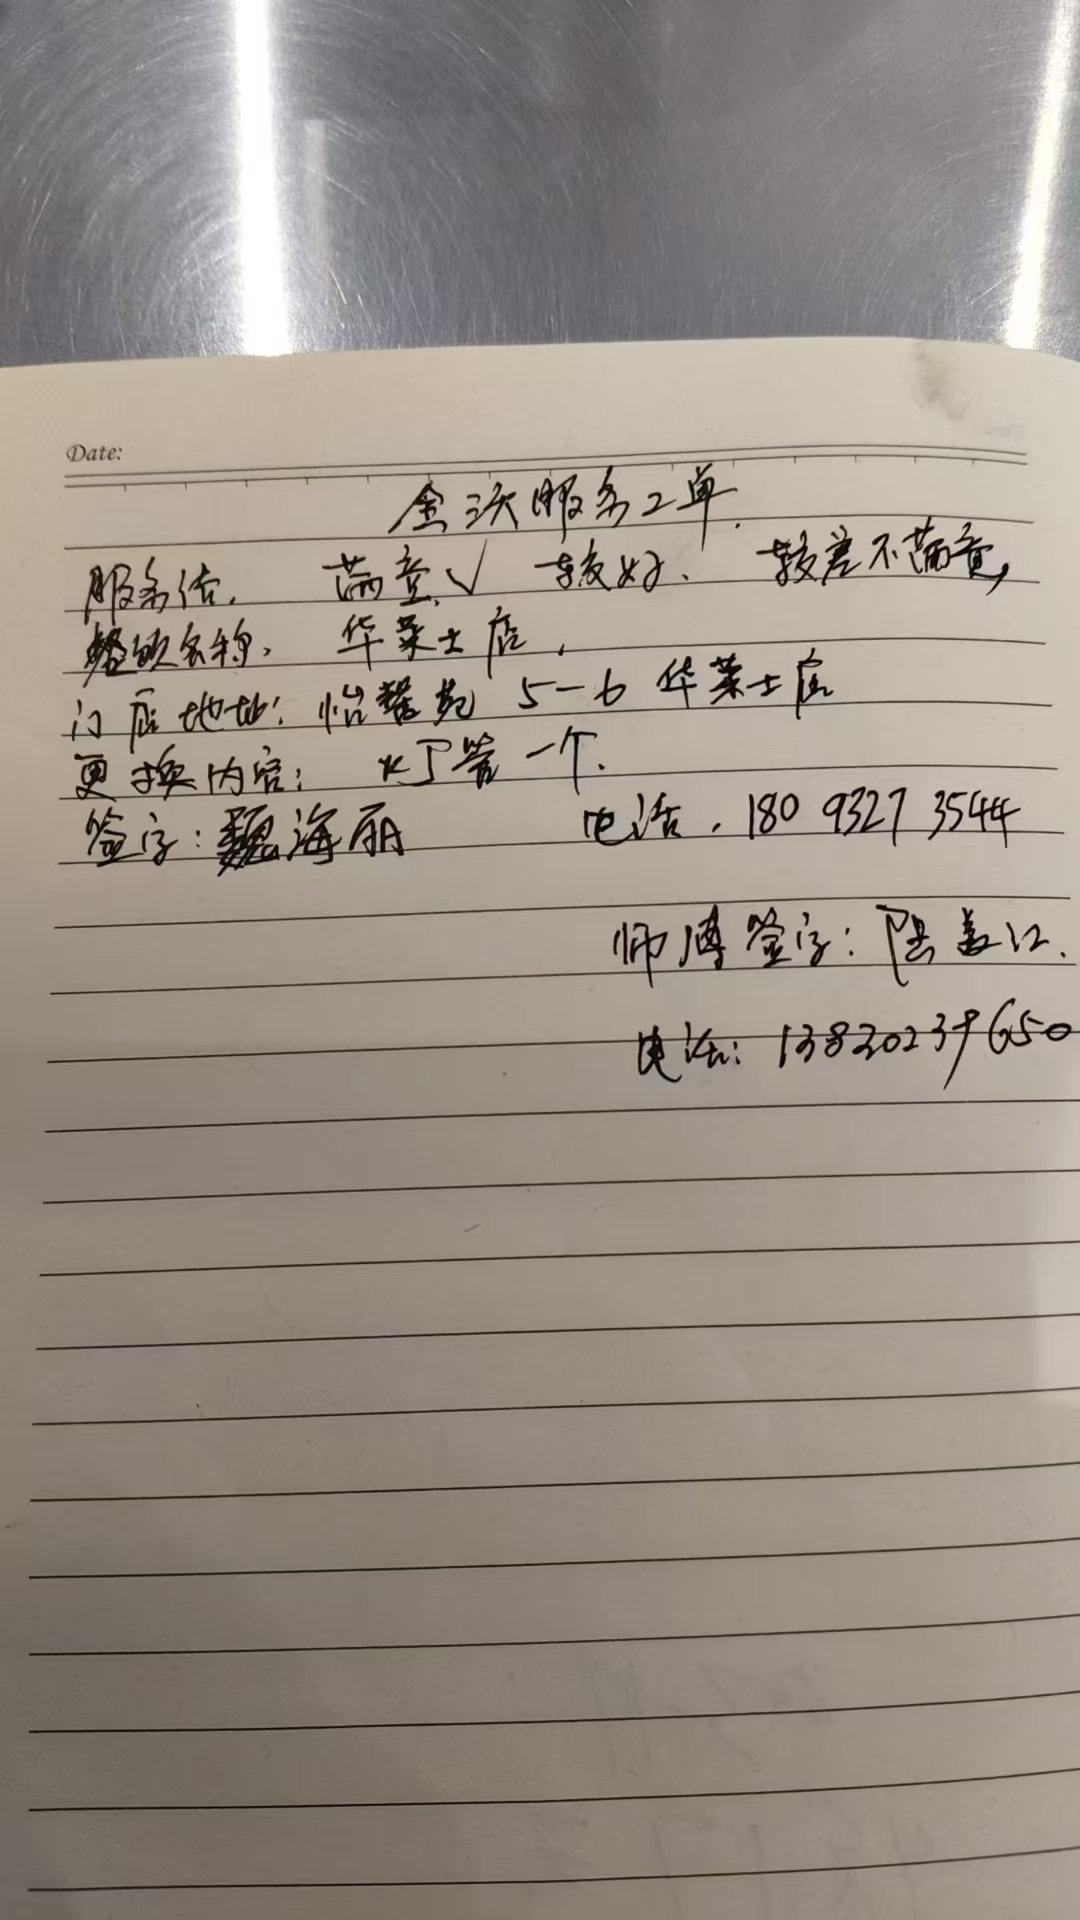 Date:
金沃服务工单.
服务估. 满意√ 较好、 较差不满意,
餐饮名称. 华莱士店.
门店地址: 怡馨苑 5-6 华莱士店
更换内容: 灯管一个.
签字: 魏海丽 电话. 180 9327 3544
师傅签字: 江.
电话: 13830239650